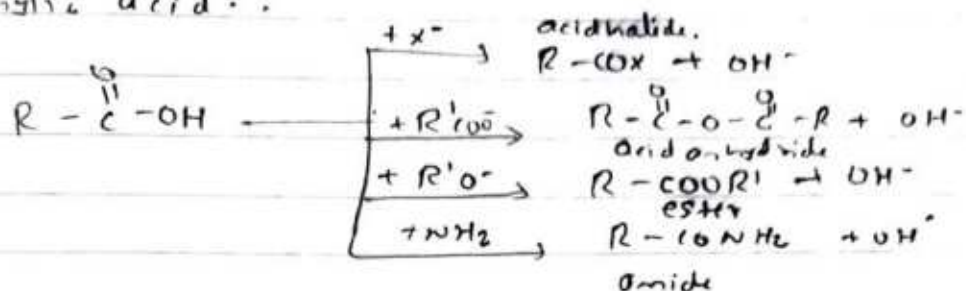 acid.
+ X⁻ acid halide.
R - COX + OH⁻
O O O
R - C - OH + R'COO⁻ R - C - O - C - R + OH⁻
acid anhydride
+ R'O⁻ R - COOR' + OH⁻
ester
+ NH2 R - CONH2 + OH⁻
amide